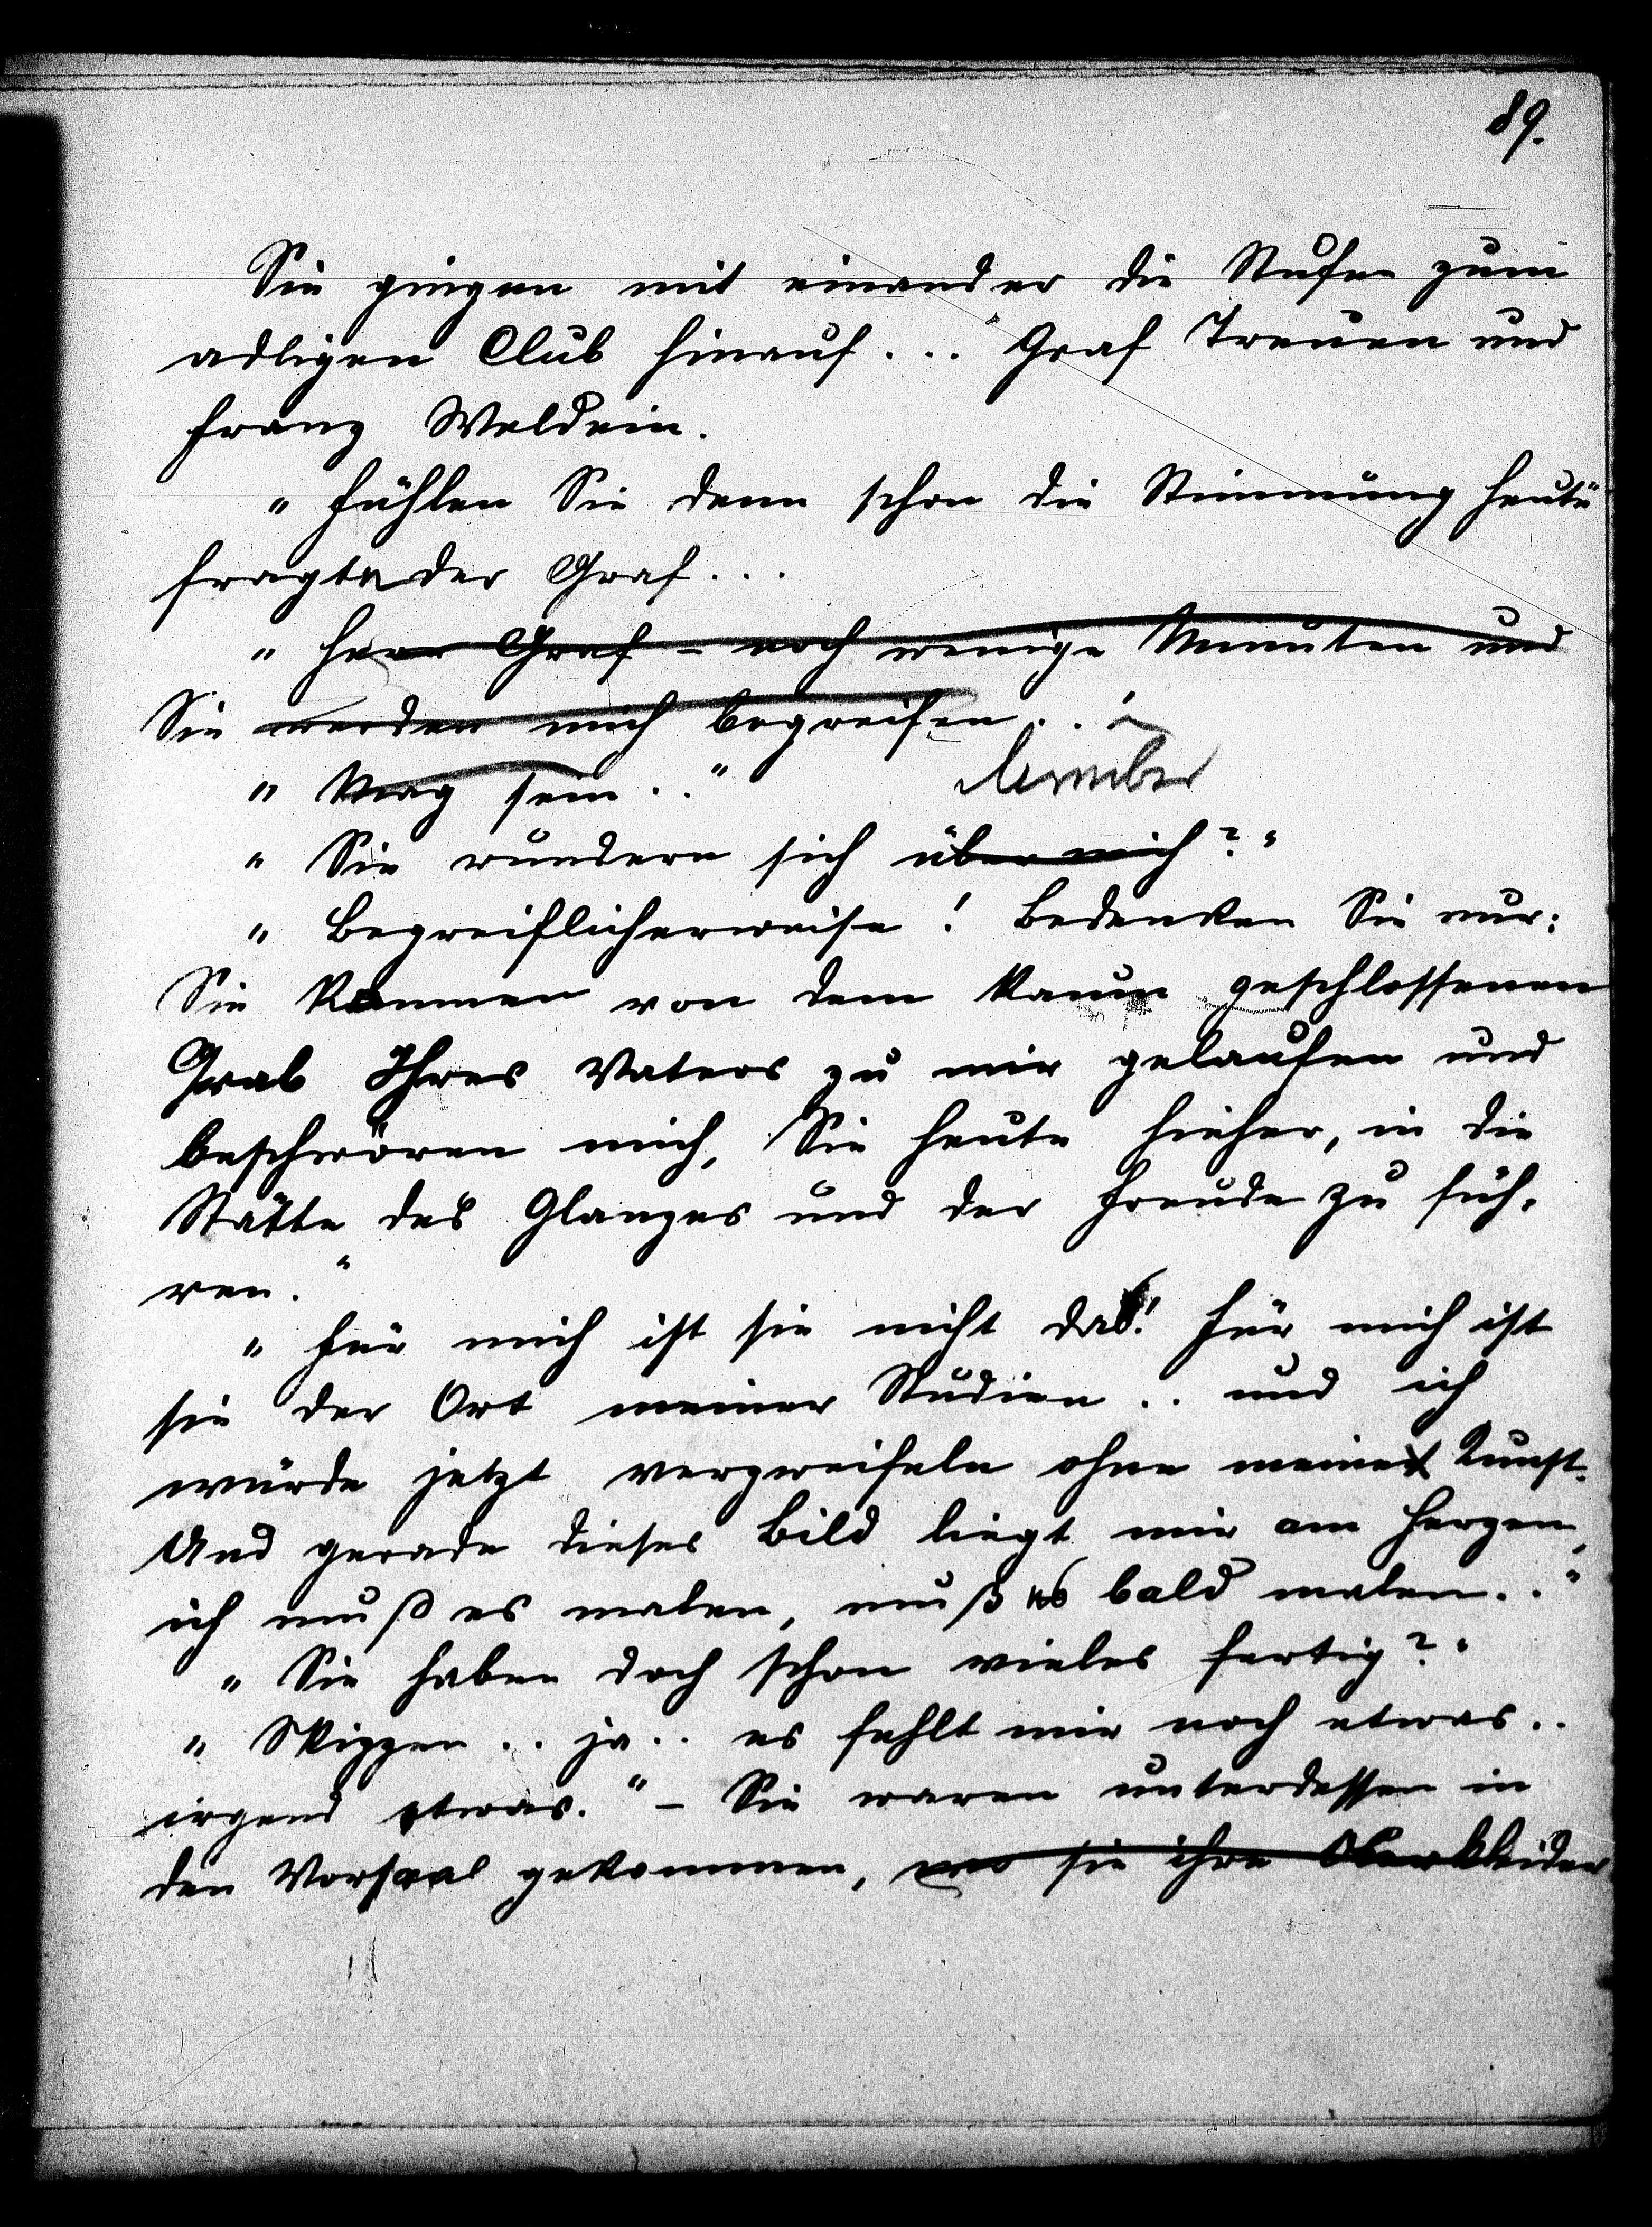 89.
Sie gingen mit einander die Stufen zum
adligen Club hinauf... Graf Treuen und
Franz Weldein.
„Fühlen Sie denn schon die Stimmung heute
fragte der Graf...
„Herr Graf – noch wenige Minuten und
Sie werden mich begreifen..."
„Mag sein.."
darüber
„Sie wundern sich über mich?"
„Begreiflicherweise! Bedenken Sie nur:
Sie kommen von dem kaum geschlossenen
Grab Ihres Vaters zu mir gelaufen und
beschwören mich, Sie heute hieher, in die
Stätte des Glanzes und der Freude zu füh-
ren."
„Für mich ist sie nicht das! Für mich ist
sie der Ort meiner Studien.. und ich
würde jetzt verzweifeln ohne meine Kunst.
Und gerade dieses Bild liegt mir am Herzen,
ich muß es malen, muß es bald malen.."
„Sie haben doch schon vieles fertig?"
„Skizzen.. ja.. es fehlt mir noch etwas..
irgend etwas." – Sie waren unterdessen in
den Vorsaal gekommen, wo sie ihre Oberkleider